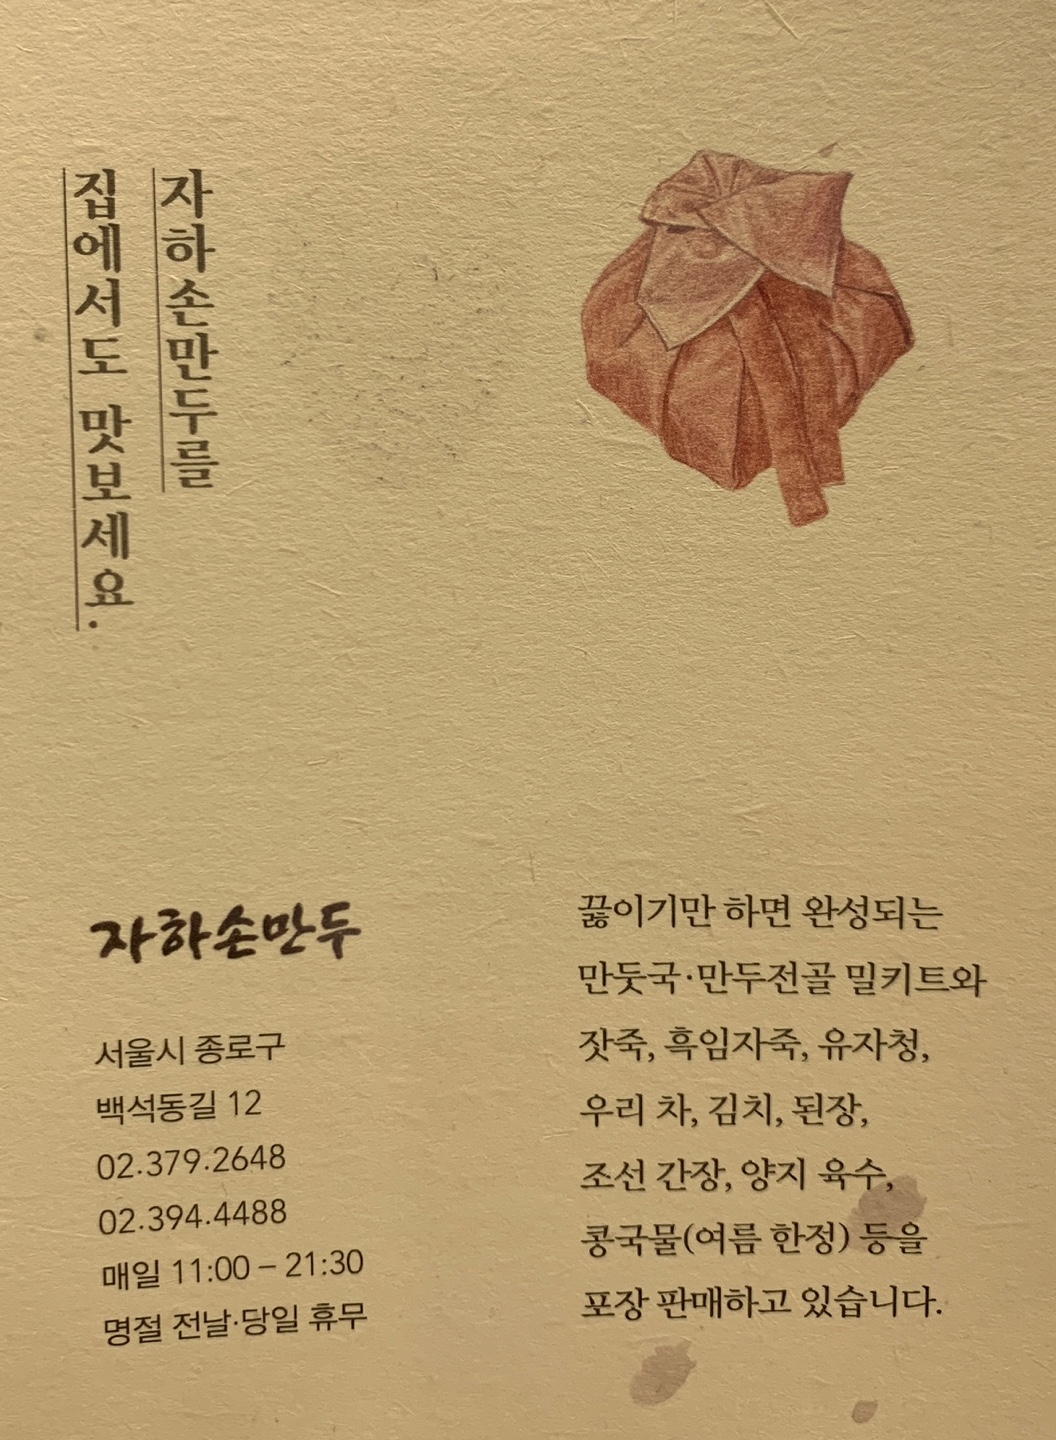 자하손만두를
집에서도 맛보세요.
자하손만두
서울시 종로구
백석동길 12
02.379.2648
02.394.4488
매일 11:00 – 21:30
명절 전날·당일 휴무
끓이기만 하면 완성되는
만둣국·만두전골 밀키트와
잣죽, 흑임자죽, 유자청,
우리 차, 김치, 된장,
조선 간장, 양지 육수,
콩국물(여름 한정) 등을
포장 판매하고 있습니다.